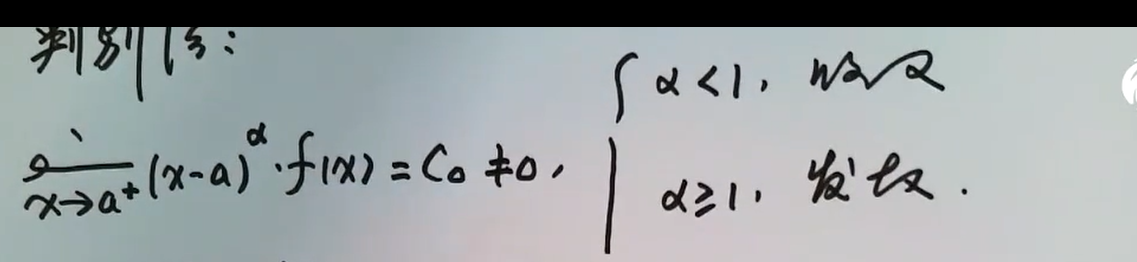 判别法:
lim x→a⁺ (x-a)^α·f(x) = C₀ ≠ 0, { α<1, 收敛
α≥1, 发散.